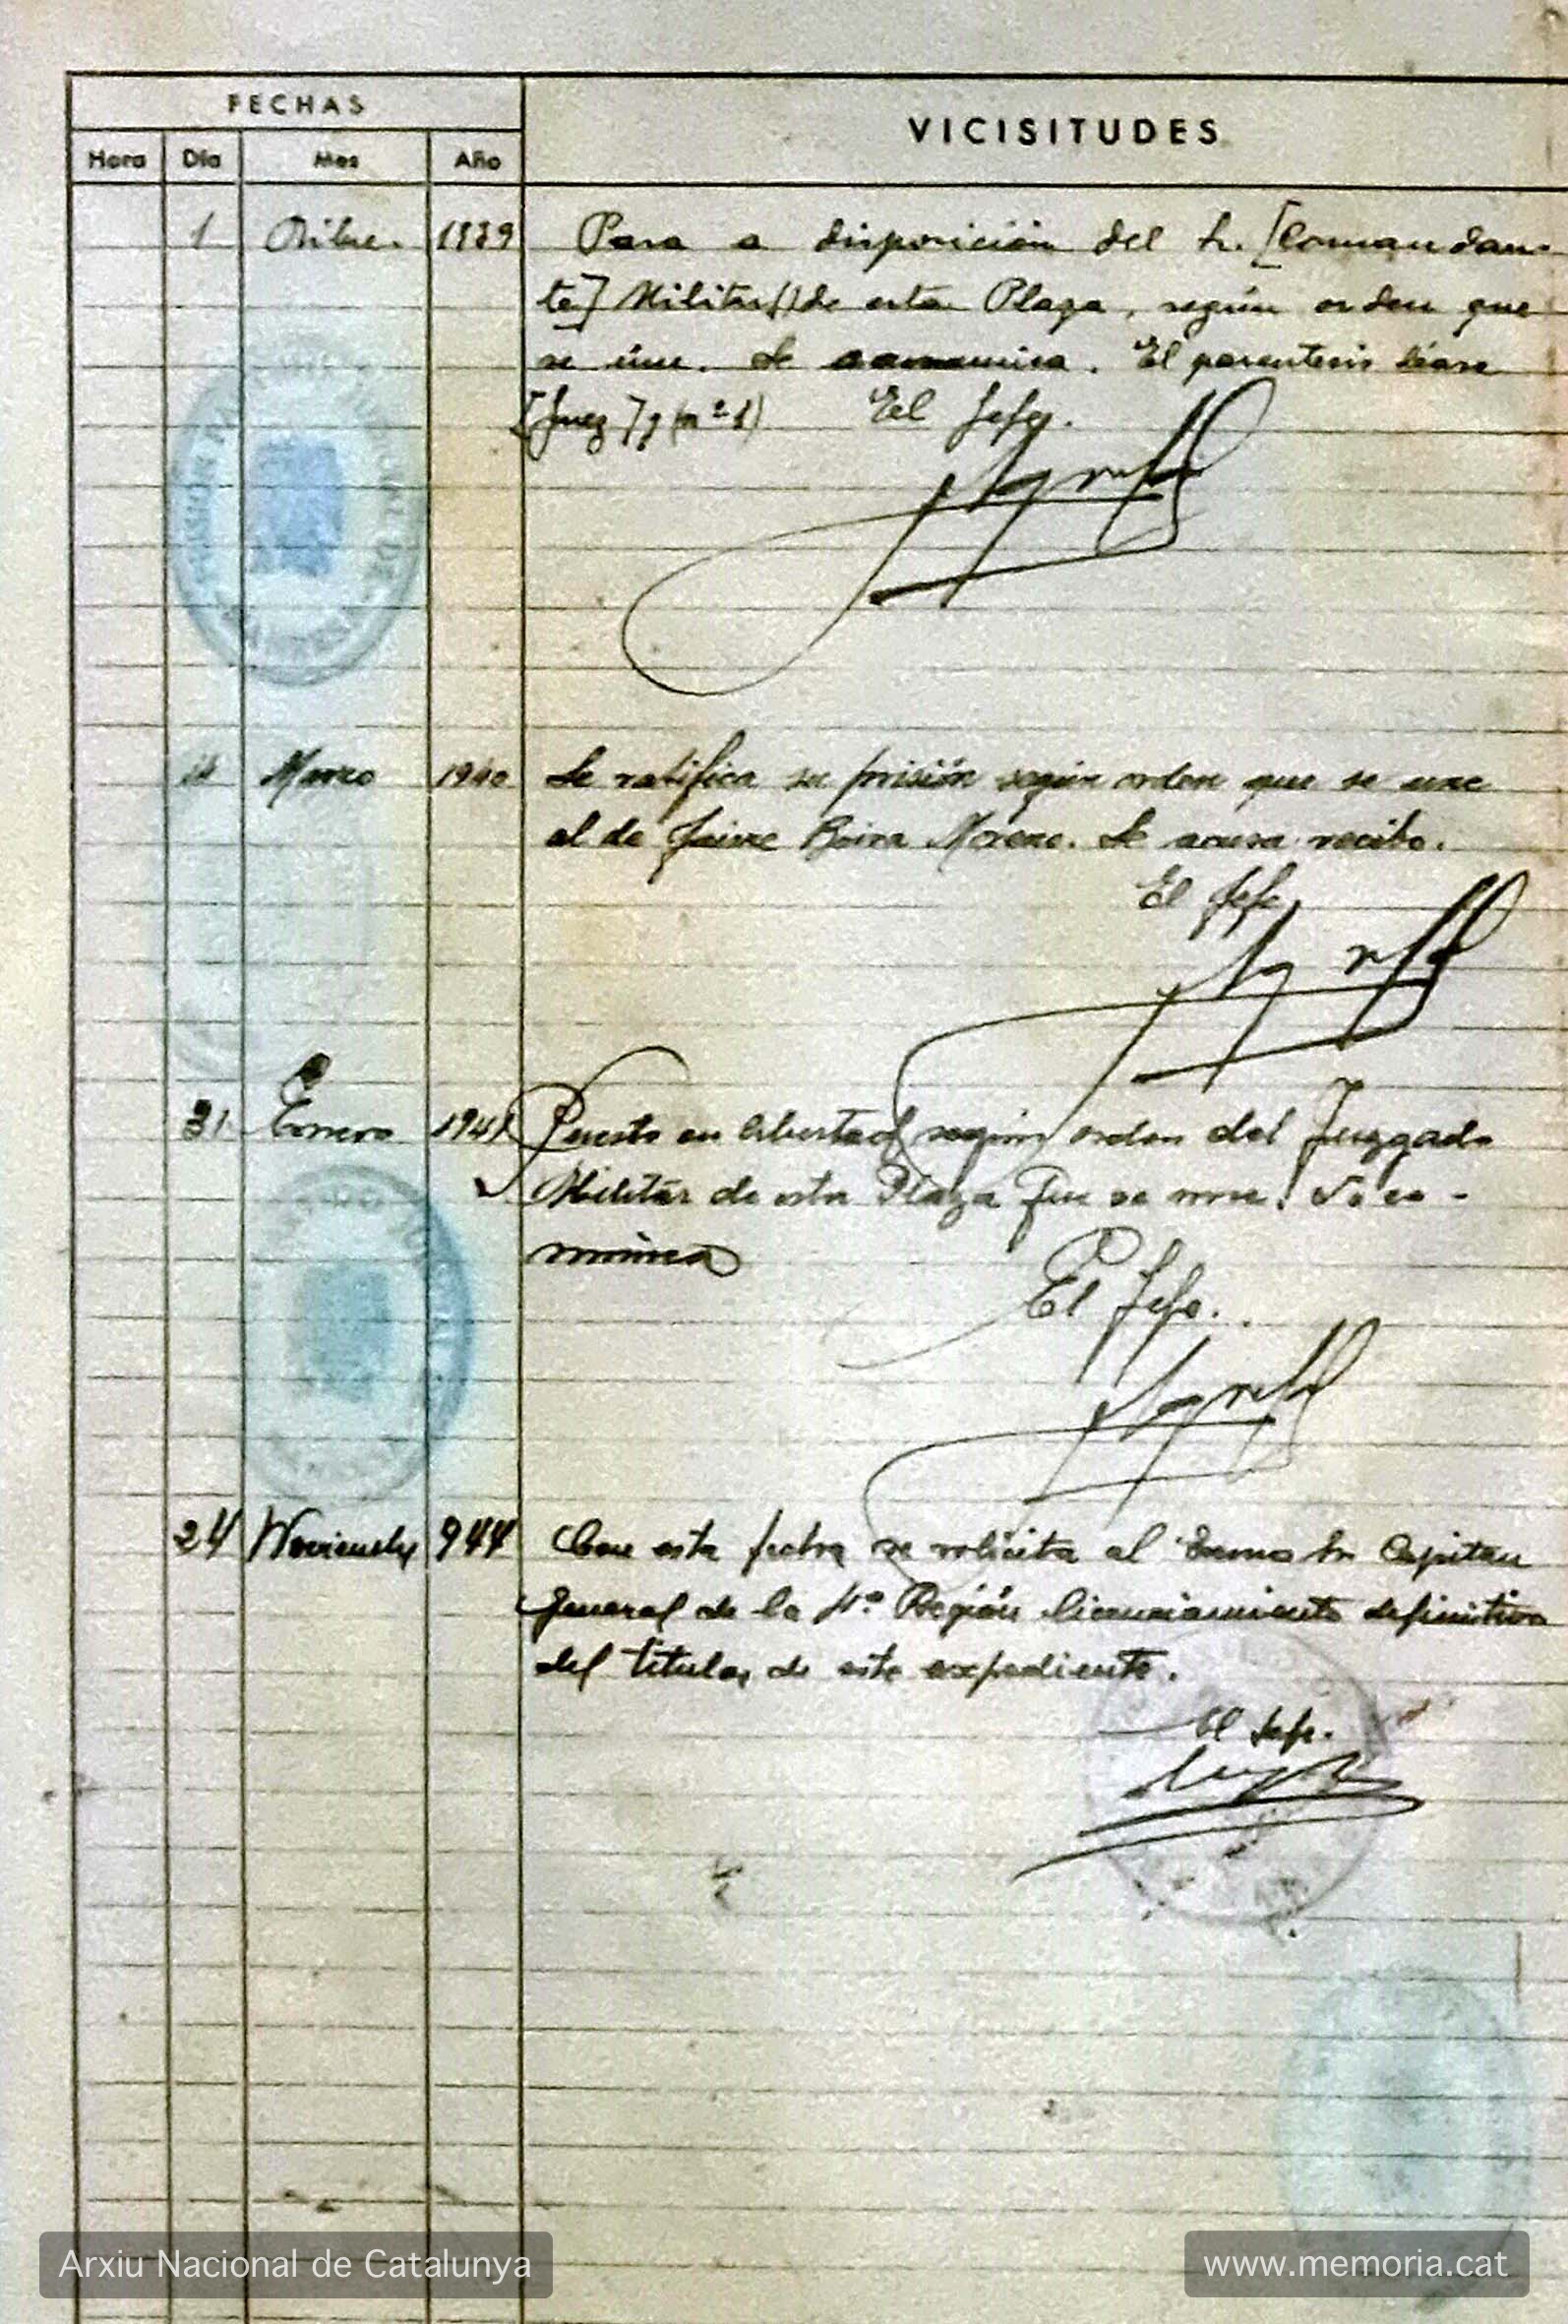 FECHAS
VICISITUDES
Hora Día Mes Año
1 Dibre. 1939 Pasa a disposición del Sr. [Comandan-
te] Militar() de esta Plaza, según orden que
se úne. Se comunica. El parentesis léase
[Juez] y (nº 1) El Jefe.
14 Marzo 1940 Se ratifica su prisión según orden que se une
al de Jaime Boira Moreno. Se acusa recibo.
El Jefe
31 Enero 1941 Puesto en libertad según orden del Juzgado
Militar de esta Plaza que se une. Se co-
munica
El Jefe.
24 Noviembre 944 Con esta fecha se solicita al Excmo Sr Capitan
General de la 4ª Región licenciamiento definitivo
del titular de este expediente.
El Jefe.
Arxiu Nacional de Catalunya
www.memoria.cat